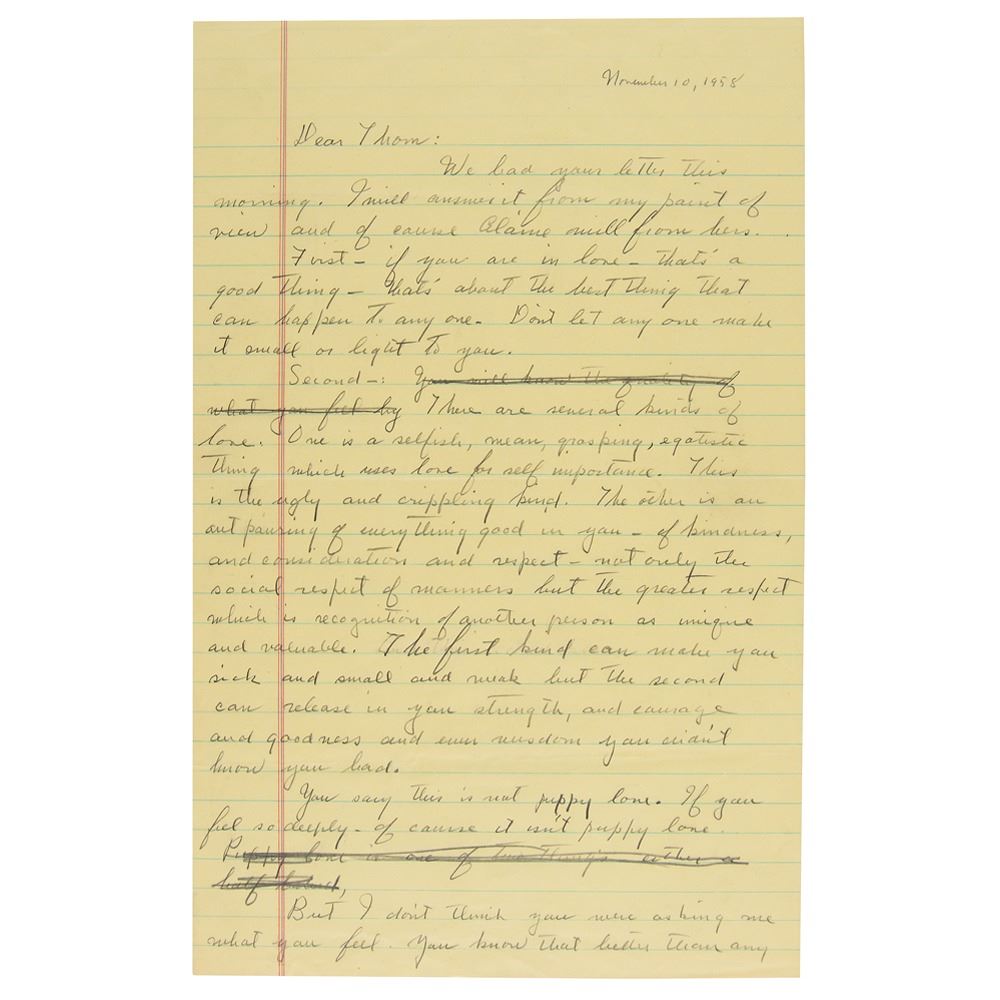 November 10, 1958
Dear Thom:
We had your letter this
morning. I will answer it from my point of
view and of course Elaine will from hers.
First — if you are in love — that's a
good thing — that's about the best thing that
can happen to any one. Don't let any one make
it small or light to you.
Second —: You will know the quality of
what you feel by There are several kinds of
love. One is a selfish, mean, grasping, egotistic
thing which uses love for self importance. This
is the ugly and crippling kind. The other is an
out pouring of everything good in you — of kindness,
and consideration and respect — not only the
social respect of manners but the greater respect
which is recognition of another person as unique
and valuable. The first kind can make you
sick and small and weak but the second
can release in you strength, and courage
and goodness and even wisdom you didn't
know you had.
You say this is not puppy love. If you
feel so deeply — of course it isn't puppy love.
Puppy love is one of two things either a
half
But I don't think you were asking me
what you feel. You know that better than any